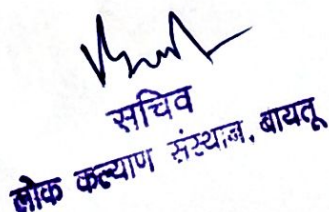 सचिव
लोक कल्याण संस्थान, बायतू